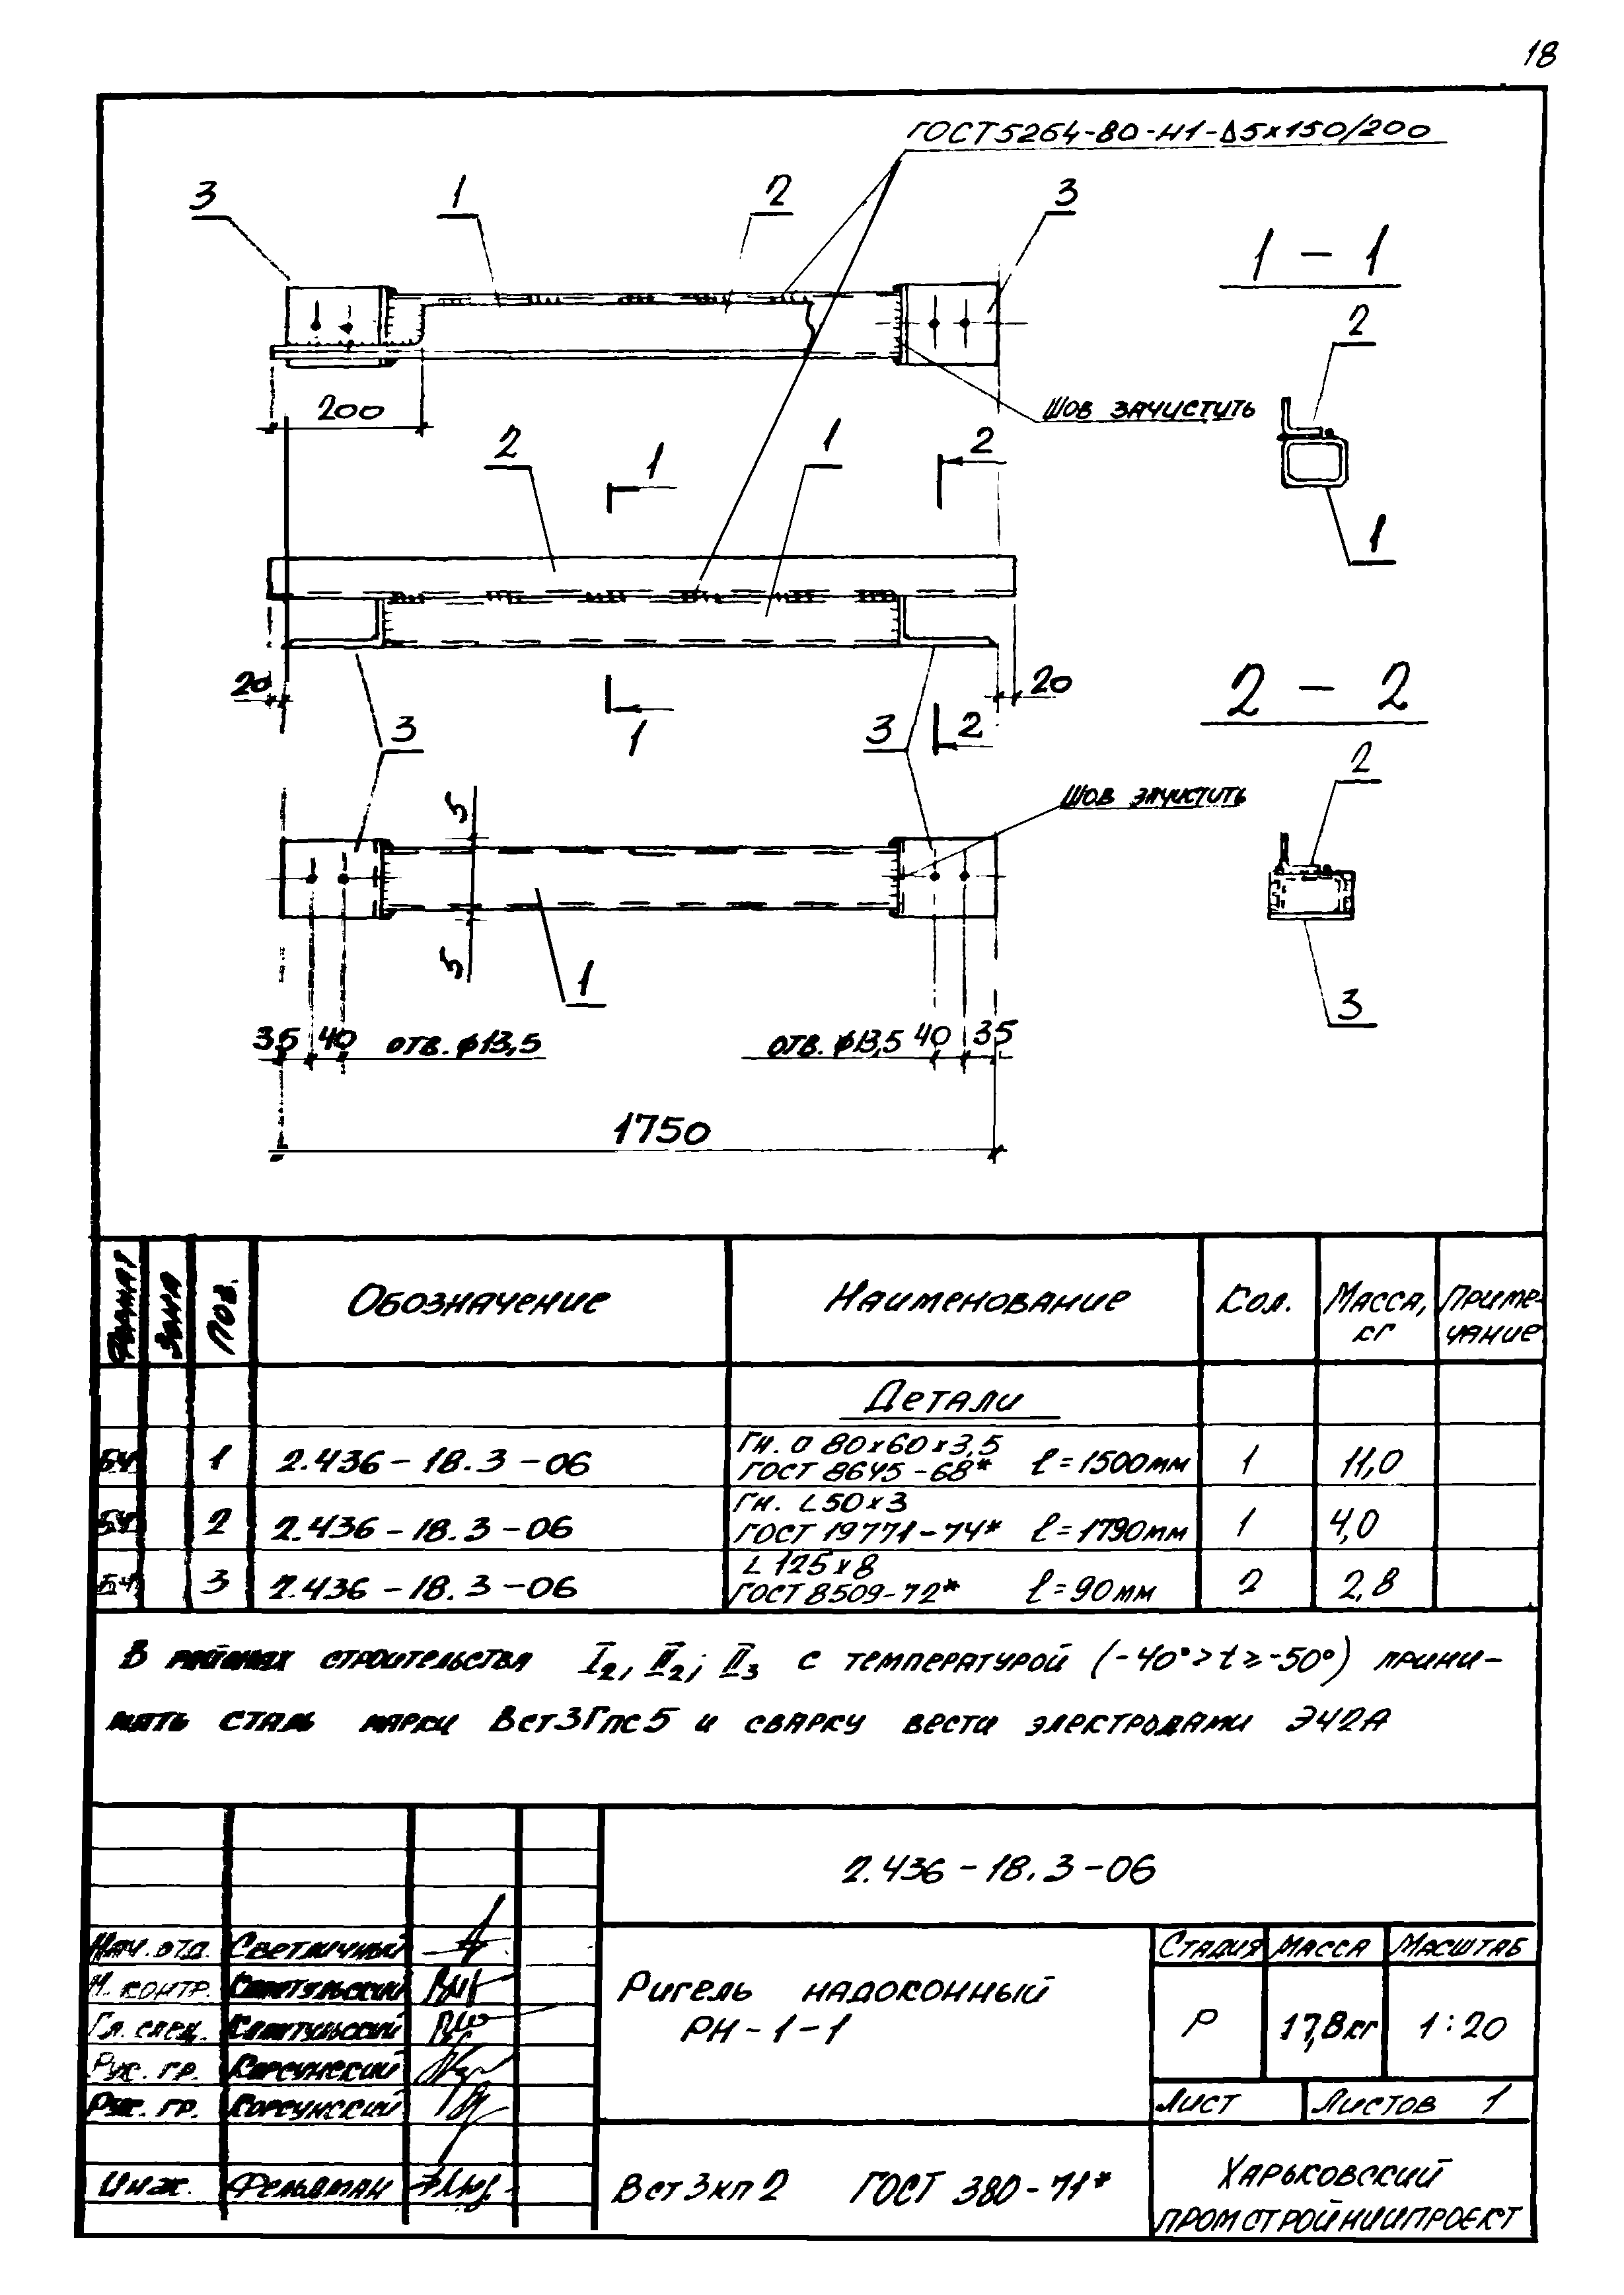 18
ГОСТ 5264-80-Н1-Δ5х150/200
3
1
2
3
1 - 1
2
200
Шов зачистить
2
1
1
2
1
20
20
2 - 2
3
1
3
2
2
5
Шов зачистить
3
5
1
35 40 отв. ⌀13,5
отв. ⌀13,5 40 35
1750
Формат Зона Поз. Обозначение Наименование Кол. Масса, кг Примечание
Детали
БЧ 1 2.436-18.3-06 Гн. □ 80х60х3,5 ГОСТ 8645-68* ℓ=1500мм 1 11,0
БЧ 2 2.436-18.3-06 Гн. L50х3 ГОСТ 19771-74* ℓ=1790мм 1 4,0
БЧ 3 2.436-18.3-06 L 125х8 ГОСТ 8509-72* ℓ=90мм 2 2,8
В районах строительства I₂, II₂; II₃ с температурой (-40°>t≥-50°) прини-
мать сталь марки Вст3Гпс5 и сварку вести электродами Э42А
2.436-18.3-06
Нач. отд. Светличный
Н. контр.
Гл. спец.
Рук. гр. Корсунский
Рук. гр. Корсунский
Инж. Фельдман
Ригель надоконный
РН-1-1
Стадия Масса Масштаб
Р 17,8кг 1:20
Лист Листов 1
Вст3кп2 ГОСТ 380-71*
Харьковский
ПРОМСТРОЙНИИПРОЕКТ